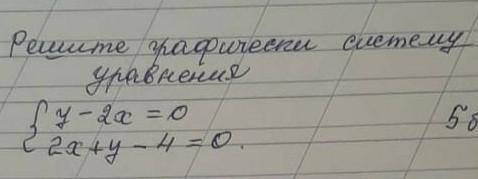 Решите графически систему
уравнения
{ y - 2x = 0
{ 2x + y - 4 = 0.
5б